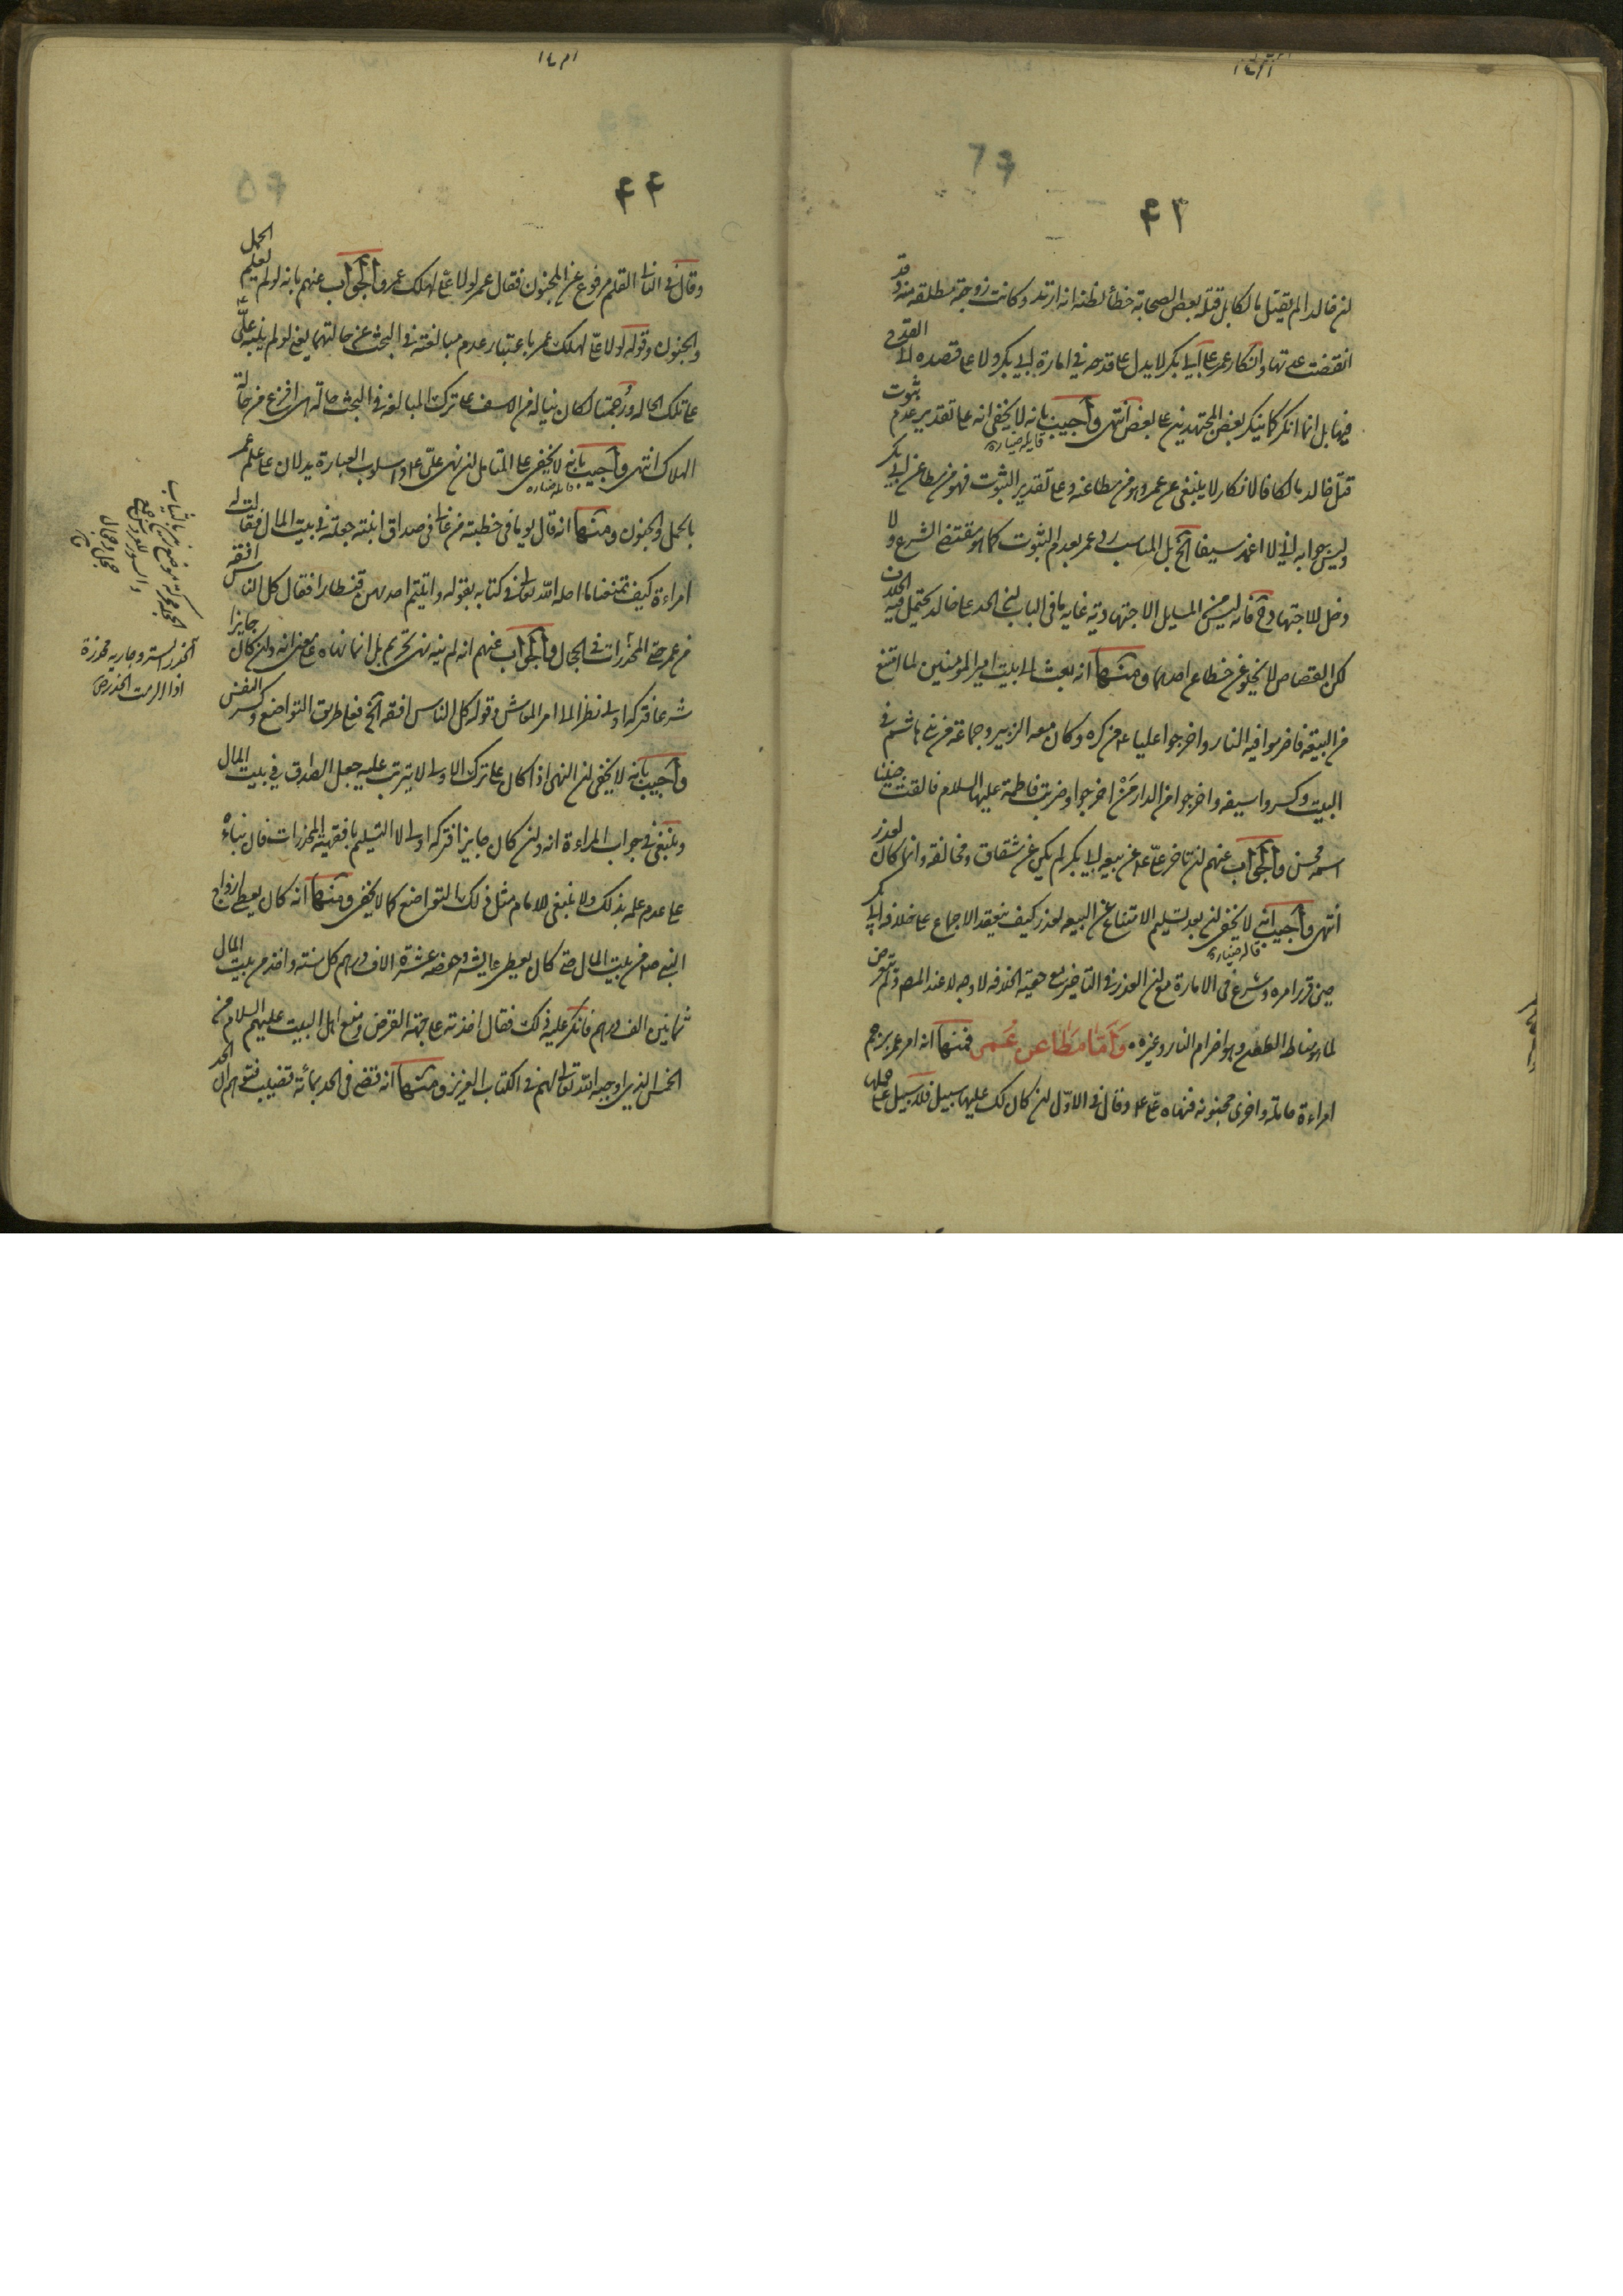 ٤٣
ان خالدا لم يقتل مالكا بل قتله بعض الصحابة خطأ لظنه انه ارتد وكانت زوجته مطلقة منه وقد
انقضت عدتها وانكار عمر على ابي بكر لا يدل على قدحه في امارة ابي بكر ولا على قصده الى القدح
فيها بل انما انكر كما ينكر بعض المجتهدين على بعض انتهى واجيب بانه لا يخفى انه على تقدير عدم ثبوت
قتل خالد مالكا فالانكار لا ينبغي عن عمر وهو من مطاعنه وعلى تقدير الثبوت فهو من مطاعن ابي بكر
وليس جوابه اني لا اغمد سيفا الخ بل المناسب رد عمر بعدم الثبوت كما هو مقتضى الشرع ولا
دخل للاجتهاد فيه فانه ليس من المسايل الاجتهادية غاية ما في الباب ان الحد على خالد يحتمل فيه الخلاف
لكن القصاص لا يخلو عن خطاء احدهما ومنها انه بعث الى بيت امير المؤمنين لما امتنع
من البيعة فاضرموا فيه النار واخرجوا عليا ع من كره وكان معه الزبير وجماعة من بني هاشم في
البيت وكسروا سيفه واخرجوا من الدار من اخرجوا وضربت فاطمة عليها السلام فالقت جنينا
اسمه محسن والجواب عنهم ان تاخر علي ع عن بيعة ابي بكر لم يكن عن شقاق ومخالفة وانما كان لعذر
انتهى واجيب انه لا يخفى ان بعد تسليم الامتناع عن البيعة لعذر كيف ينعقد الاجماع على خلافة ابي بكر
حين قرر امره وشرع في الامارة مع ان العذر في التاخير مع حقية الخلافة لا وجه له عند المصر ولم يتعرض
لما هو مناط الطعن وهو اضرام النار وغيره واما مطاعن عمر فمنها انه امر عمر برجم
امراءة حاملة واخرى مجنونة فنهاه علي ع وقال في الاول ان كان لك عليها سبيل فلا سبيل على حملها
٤٤
وقال في الثاني القلم مرفوع عن المجنون فقال عمر لولا علي لهلك عمر والجواب عنهم بانه لم يعلم الحمل
والجنون وقوله لولا علي لهلك عمر باعتبار عدم مبالغته في البحث عن حالتهما يعني لو لم ينبه علي ع
على تلك الحالة ورجمتا لكان يناله من الاسف على ترك المبالغة في البحث حالة هي افزع من حالة
الهلاك انتهى واجيب بانه لا يخفى على المتامل ان نهي علي ع واسلوب العبارة يدلان على علم عمر
بالحمل والجنون ومنها انه قال يوما في خطبته من غالى في صداق ابنته جعلته في بيت المال فقالت له
امراءة كيف تمنعنا ما احله الله تعالى في كتابه بقوله واتيتم احديهن قنطارا فقال كل الناس افقه
من عمر حتى المخدرات في الحجال والجواب عنهم انه لم ينه نهي تحريم بل انما نهاه على معنى انه وان كان جايزا
شرعا فتركه اولى نظرا الى امر المعاش وقوله كل الناس افقه الخ فعلى طريق التواضع وكسر النفس
واجيب بانه لا يخفى ان النهي اذا كان على ترك الاولى لا يترتب عليه جعل الصداق في بيت المال
وينبغي في جواب المراءة انه وان كان جايزا فتركه اولى لا التسليم بافقهية المخدرات فان بناءه
على عدم علمه بذلك ولا ينبغي للامام مثل ذلك التواضع كما لا يخفى ومنها انه كان يعطي ازواج
النبي ص من بيت المال حتى كان يعطي عايشة وحفصة عشرة الاف درهم كل سنة واخذ من بيت المال
ثمانين الف درهم فانكر عليه ذلك فقال اخذته على جهة القرض ومنع اهل البيت عليهم السلام من
الخمس الذي اوجبه الله تعالى لهم في الكتاب العزيز ومنها انه قضى في الحد بمائة قضيب
الخدر الستر وجارية مخدرة
اذا الزمت الخدر ص